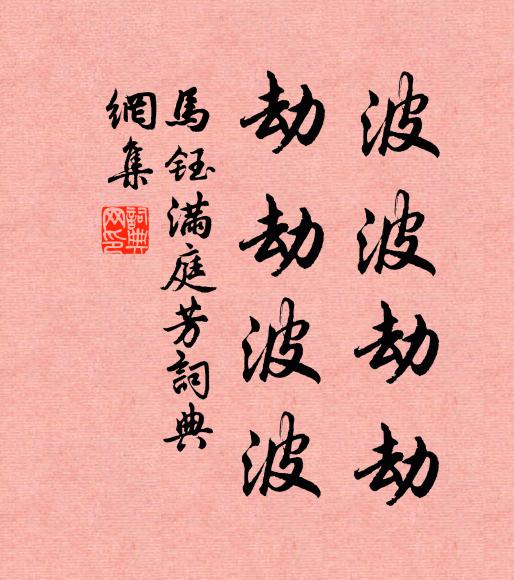 波波劫劫
劫劫波波
馬鈺滿庭芳詞典
網集
詞典網印